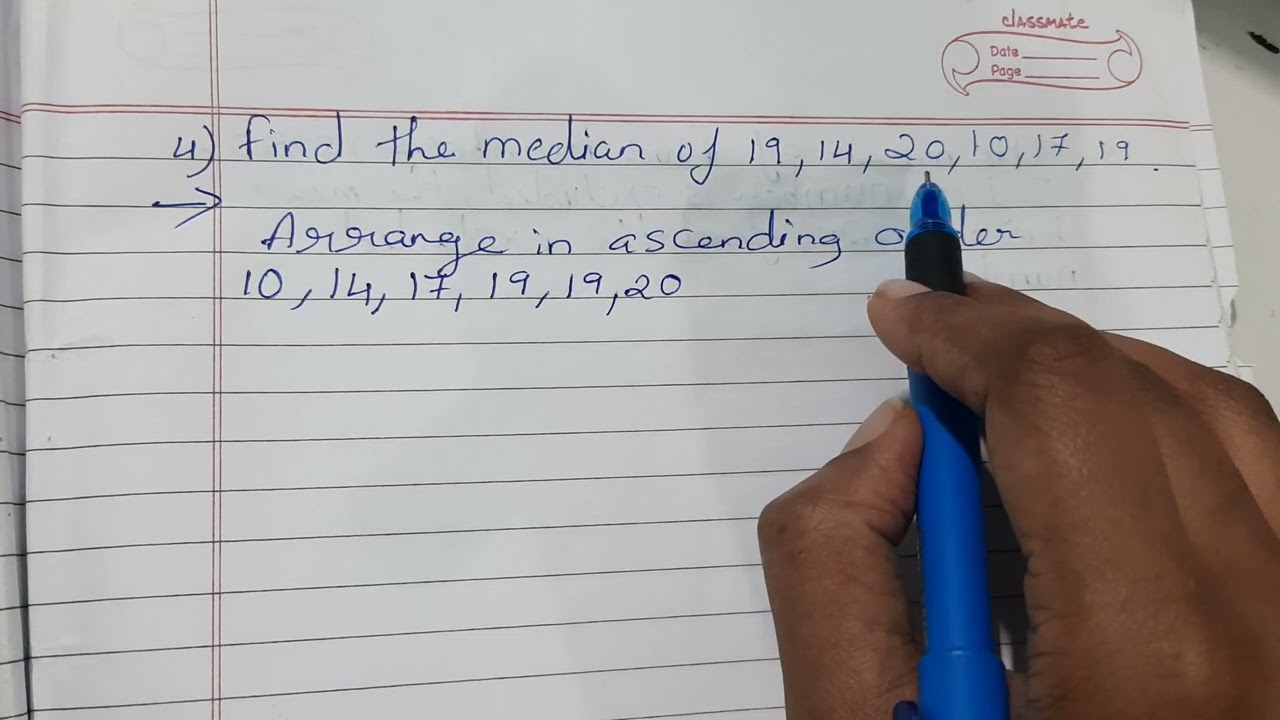 classmate
Date
Page
4) find the median of 19, 14, 20, 10, 17, 19.
Arrange in ascending order
10, 14, 17, 19, 19, 20